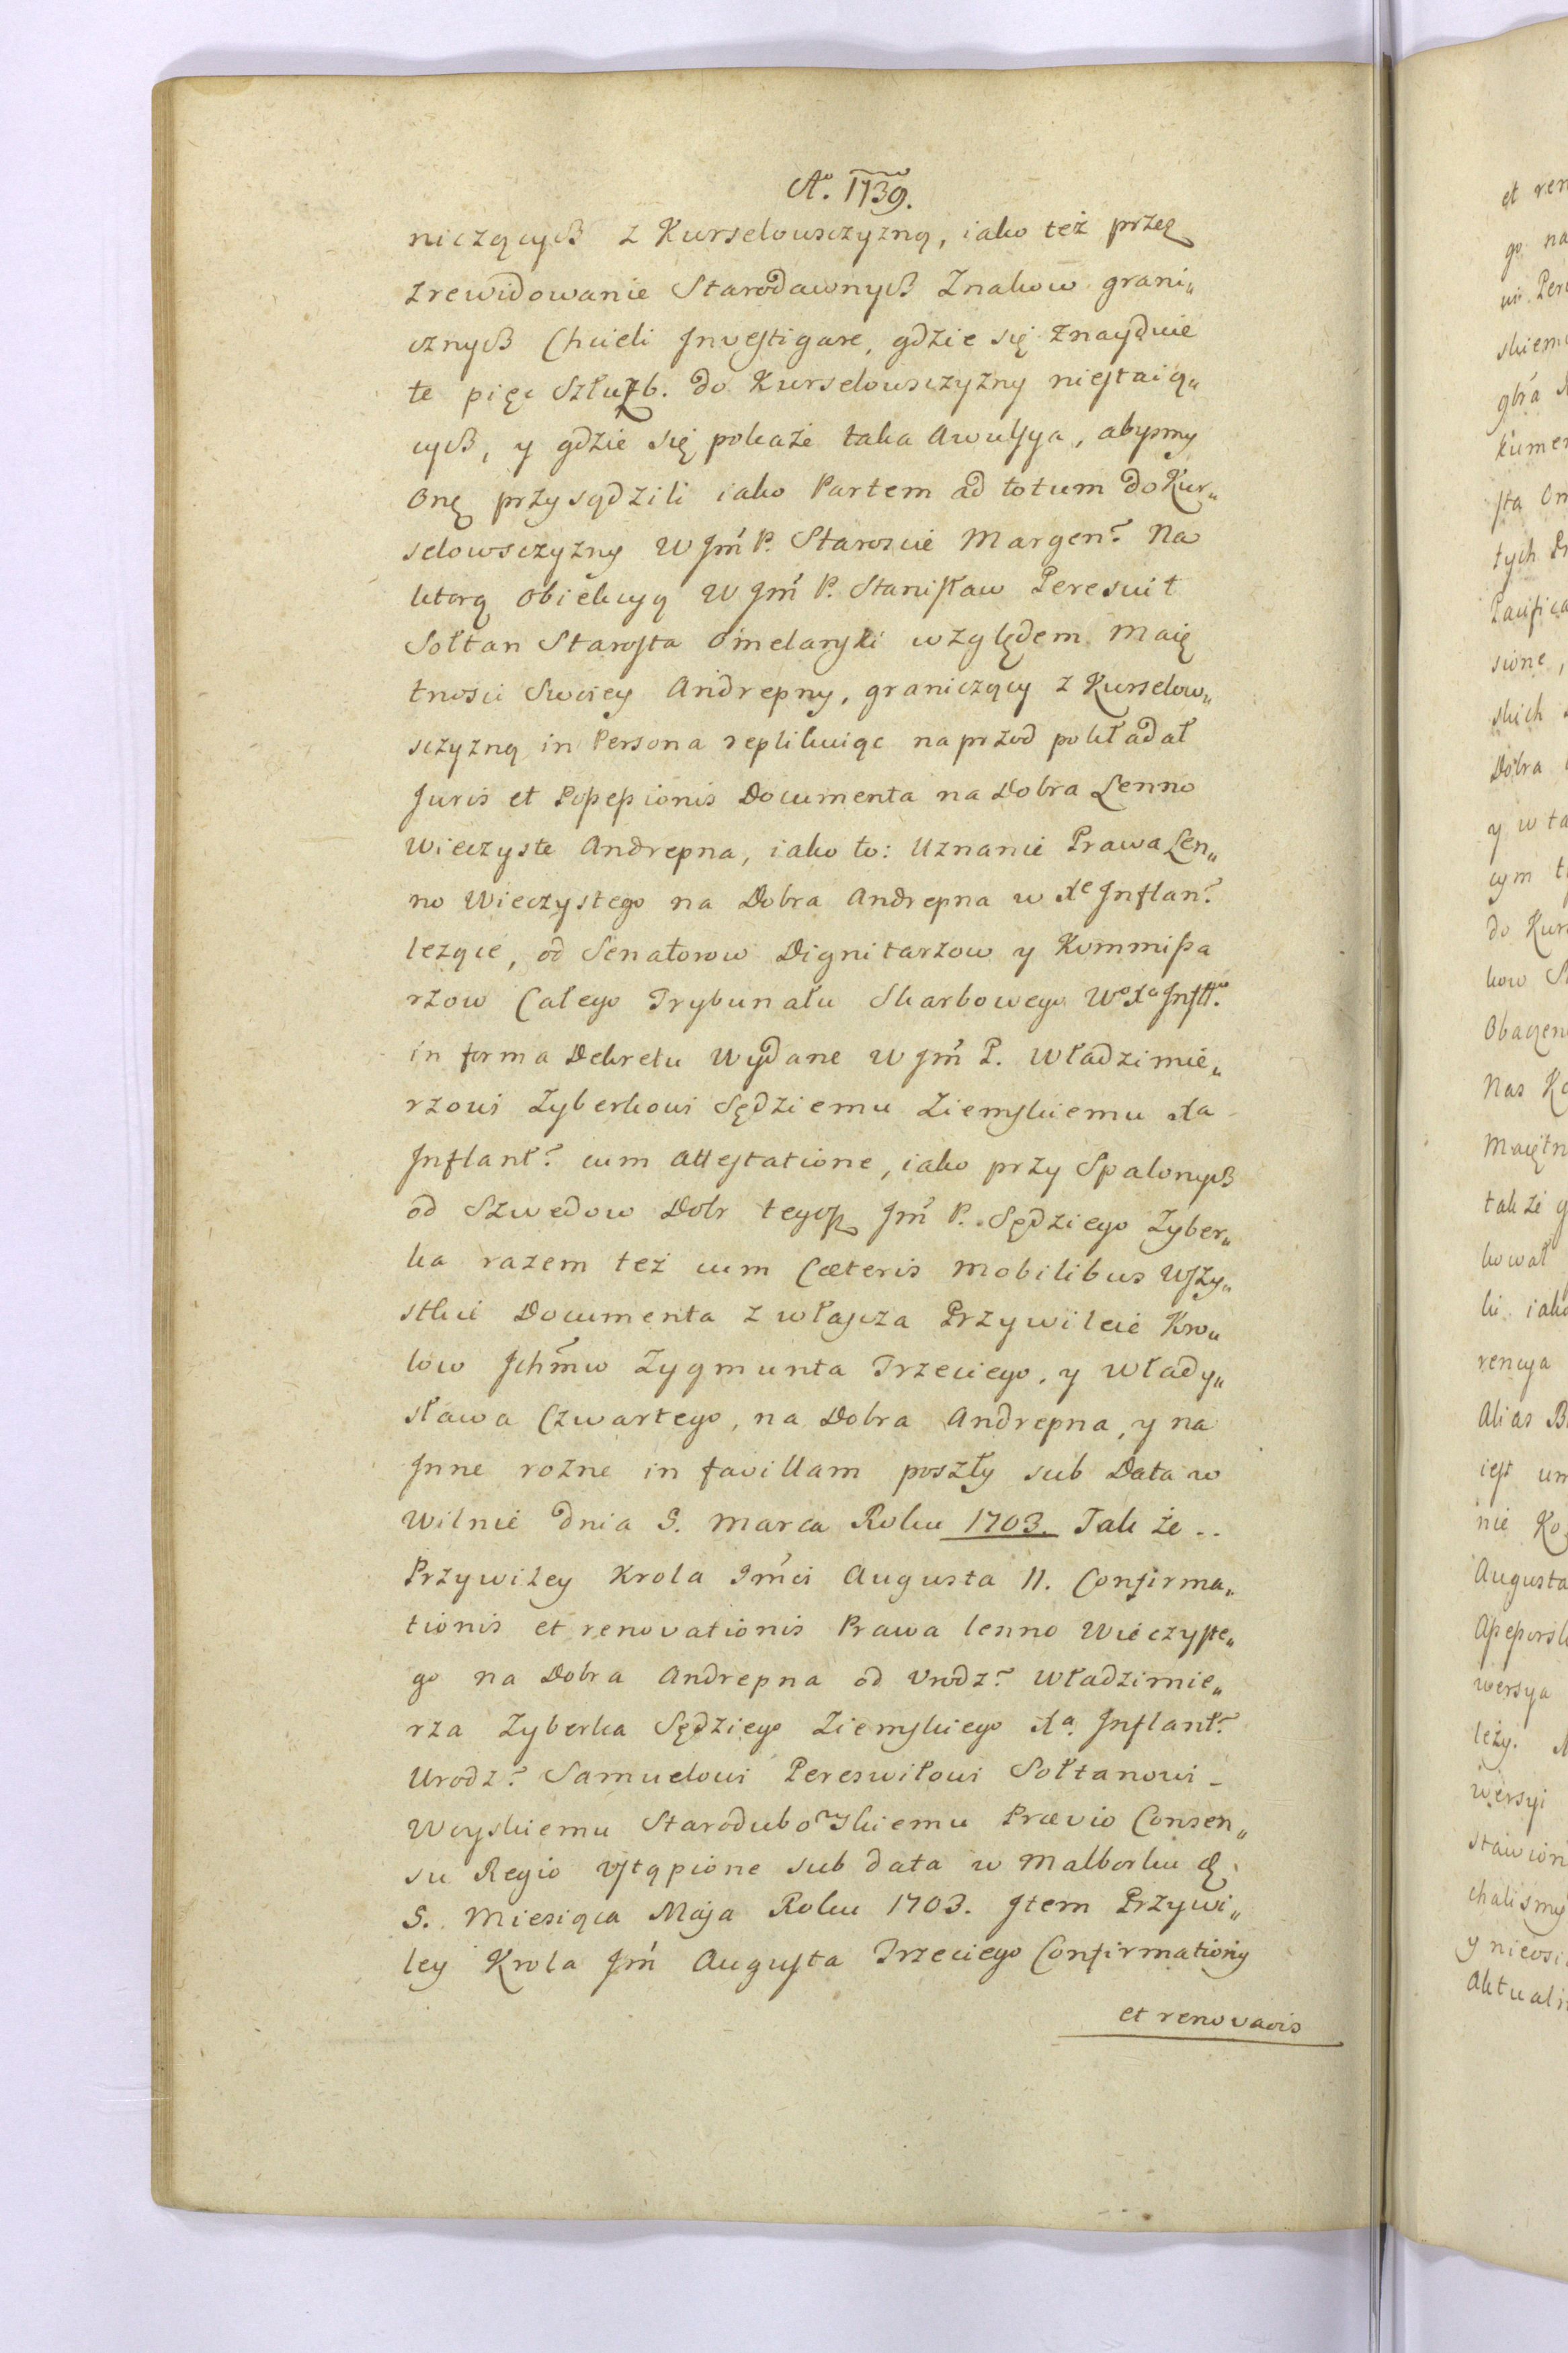 Aō. 1739.
niczących z Kurselowsczyzną, iako też przez
zrewidowanie Starodawnych Znakow grani„
cznych Chcieli Investigare, gdzie się znayduie
te pięc Szłużb. do Kurselowsczyzny niestaią„
cych, y gdzie się pokaże taka Awulsya, abysmy
Onę przysądzili iako Partem ad totum do Kur„
selowsczyzny WJm̃ P. Staroscie Margen? Na
ktorą Obiekcyą WJm̃ P. Stanisław Pereswit
Sołtan Starosta Omelanski względem Maię
tnosci Swoiey Andrepny, graniczący z Kurselow„
sczyzną in Persona replikuiąc naprzod pokładał
Juris et Possessionis Documenta na Dobra Lenno
Wieczyste Andrepna, iako to: Uznanie Prawa Len„
no Wieczystego na Dobra Andrepna w Xe Inflan?
lezące, od Senatorow Dignitarzow y Kommissa
rzow Całego Trybunału Skarbowego Wo Xa Infltt.
in forma Dekretu Wydane WJm̃ P. Władzimie„
rzowi Zyberkowi Sędziemu Ziemskiemu Xa
Inflant? cum Attestatione, iako przy Spalonych
od Szwedow Dobr tegosz Jm̃ P. Sędziego Zyber„
ka razem też cum Cæteris Mobilibus Wszy„
stkie Documenta z włascza Przywileie Kro„
low Jchm̃w Zygmunta Trzeciego, y Włady„
sława Czwartego, na Dobra Andrepna, y na
Jnne rozne in favillam poszły sub Data w
Wilnie dnia 5. Marca Roku 1703. Tak że ..
Przywiley Krola Jm̃ci Augusta II. Confirma„
tionis et renovationis Prawa lenno Wieczyste„
go na Dobra Andrepna od Urodz? Władzimie„
rza Zyberka Sędziego Ziemskiego Xa. Inflant?
Urodz? Samuelowi Pereswitowi Sołtanowi -
Woyskiemu Starodubowskiemu Prævio Consen„
su Regio Ustąpione sub data w Malborku d.
5. Miesiąca Maja Roku 1703. Jtem Przywi„
ley Krola Jm̃ Augusta Trzeciego Confirmationis
et renovaōis